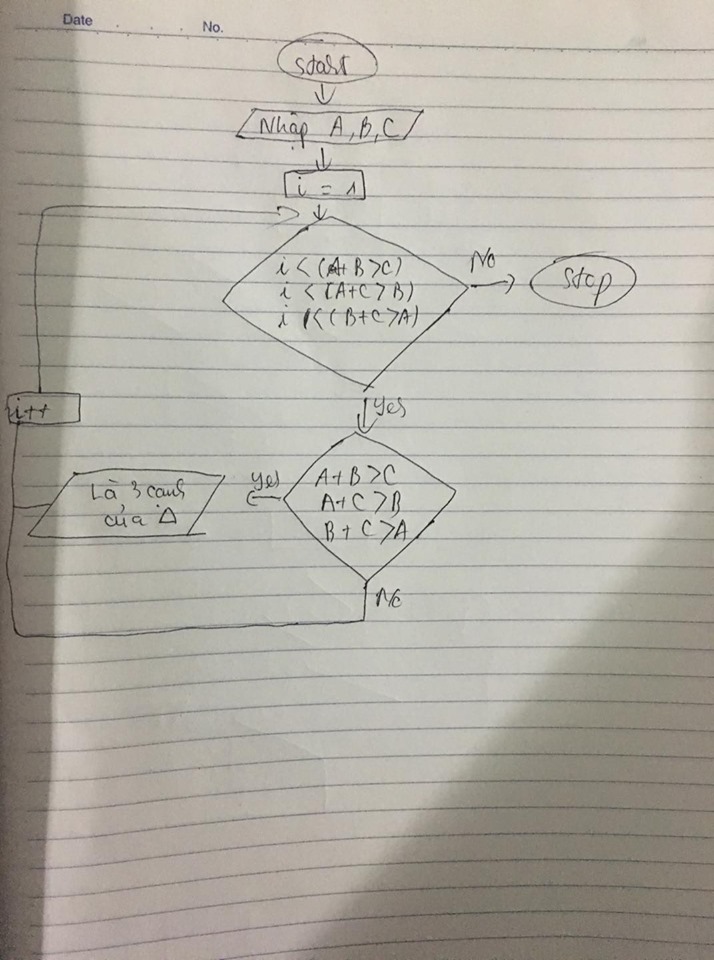 Date No.
start
Nhập A, B, C
i = 1
i < (A+B >C)
i < (A+C > B)
i < (B+C >A)
No
stop
yes
i++
A+B >C
A+C >B
B+C >A
yes
Là 3 cạnh
của Δ